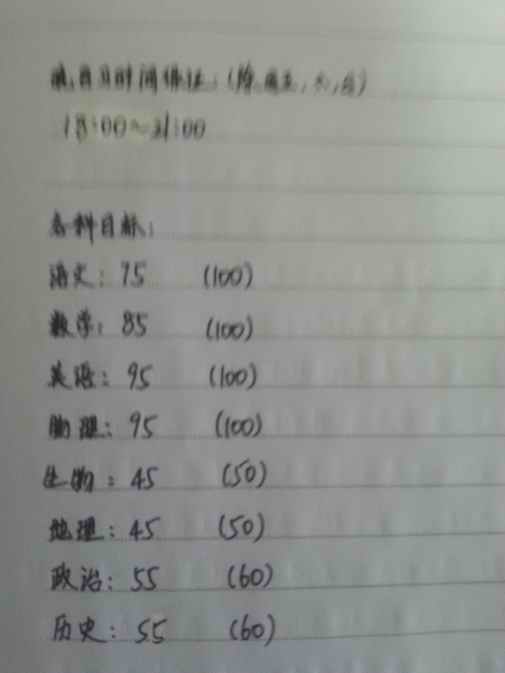 自习时间保证：(除周五,六,日)
18:00~21:00
各科目标：
语文：75 (100)
数学：85 (100)
英语：95 (100)
物理：95 (100)
生物：45 (50)
地理：45 (50)
政治：55 (60)
历史：55 (60)